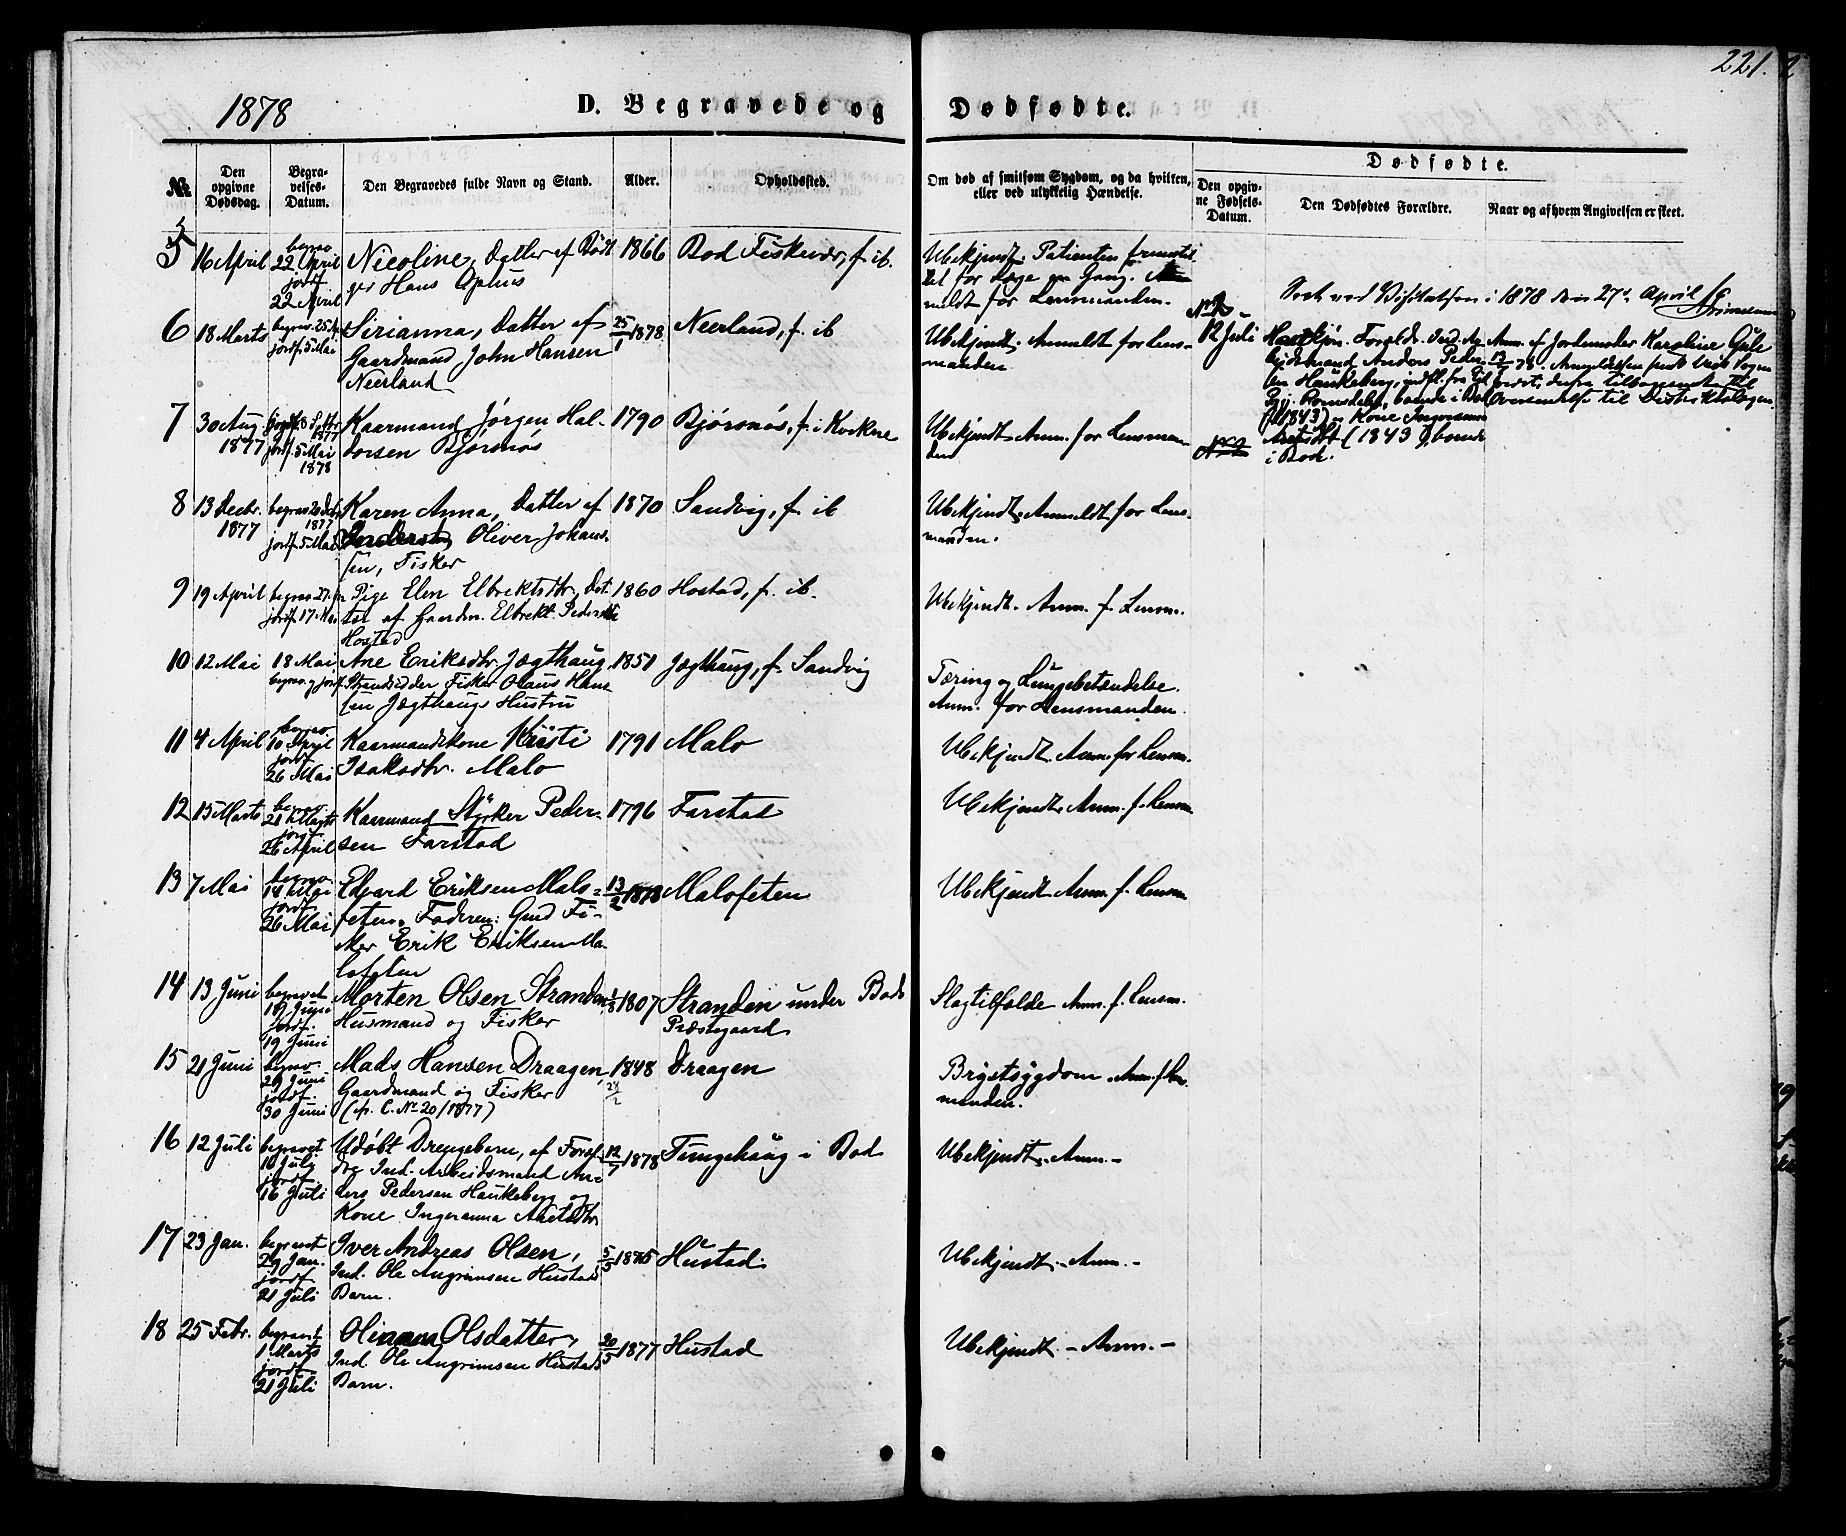 221.
1878
D. Begravede og Dødfødte.
№
Den opgivne Dødsdag.
Begravelses-Datum.
Den Begravedes fulde Navn og Stand.
Alder.
Opholdssted.
Om død af smitsom Sygdom, og da hvilken, eller ved ulykkelig Hændelse.
Dødfødte.
Den opgivne Fødsels-Datum.
Den Dødfødtes Forældre.
Naar og af hvem Angivelsen er skeet.
5 16 April begrav. 22 April jordf. 22 April
Nicoline, Datter af
Hans
1866 Bod Fiskevær, f. ib.
Ubekjendt. Patienten
for Læge en Gang.
meldt for Lensmanden.
6 18 Marts jordf. 5 Mai
Sirianna, Datter af
Gaardmand John Hansen
Neerland
25/1 1878 Neerland, f. ib
Ubekjendt. Anmeldt for Lens-
manden
7 30 Aug 1877 jordf. 5 Mai 1878
Kaarmand Jørgen Hal-
dorsen Bjørsnøs
1790 Bjørsnøs, f. i
Ubekjendt. Anm. for Lensman
den
8 13 Decbr. 1877 1877 jordf. 5 Mai
Karen Anna, Datter af
Oliver Johans-
sen, Fisker
1870 Sandvig, f. ib
Ubekjendt. Anmeldt for Lens-
manden.
9 19 April begrav. 27 jordf. 17 Mai
Pige Elen Elbrektsdtr, Dat-
ter af Gaardm. Elbrekt Pedersen
Hostad
1860 Hostad, f. ib.
Ubekjendt. Anm. f. Lensm.
10 12 Mai 18 Mai begrav. og jordf.
Ane Eriksdtr. Jægthaug.
Strandsidder Fisker Olaus Han-
sen Jægthaugs Hustru
1851 Jægthaug, f. Sandvig
Tæring og Lungebetændelse.
Anm. for Lensmanden.
11 4 April begrav. 10 April jordf. 26 Mai
Kaarmandskone Kristi
Isaksdtr. Malo
1791 Malo
Ubekjendt. Anm. for Lensm.
12 15 Marts begrav. 21 Marts jordf. 26 April
Kaarmand Styrker Peder-
sen Farstad
1796 Farstad
Ubekjendt. Anm. f. Lensm
13 7 Mai begrav. 14 Mai jordf. 26 Mai
Edvard Eriksen Malo-
feten. Faderen: Gmd Fi-
sker Erik Eriksen Ma-
lofeten
13/2 1878 Malofeten
Ubekjendt. Anm. f. Lensm
14 13 Juni begravet 19 Juni jordf. 19 Juni
Morten Olsen Stranden
Husmand og Fisker
1/8 1807 Stranden under Bods
Præstegaard
Slagtilfælde Anm. f. Lensm.
15 21 Juni begrav. 29 Juni jordf. 30 Juni
Mads Hansen Draagen,
Gaardmand og Fisker
(cfr. C. № 20/1877)
1848 24/2 Draagen
Brystsygdom. Anm. f. Lens-
manden.
16 12 Juli begravet 16 July jordf. 16 Juli
Udøbt Drengebarn, af Foræl-
dre Ind. Arbeidsmand An-
ders Pedersen Haukeberg og
Kone Ingeranna
12/7 1878 Tungehaug i Bod
Ubekjendt. Anm. -
17 23 Jan. begravet 29 Jan. jordf. 21 Juli
Iver Andreas Olsen,
Ind. Ole Angrimsen Hustads
Barn.
5/5 1875 Hustad.
Ubekjendt. - Anm. -
18 25 Febr. begravet 1 Marts jordf. 21 Juli
Olianna Olsdatter,
Ind. Ole Angrimsen Hustads
Barn.
20/5 1877 Hustad
Ubekjendt. - Anm. -
ved Visitatsen i 1878 den 27de April
12 Juli
Forældr. Ind. Ar-
beidsmand Anders Peder-
sen Haukeberg, indfl. fra
Romsdalen, boende i Bod
(1843) og Kone Ingeranna
(1843), boende
i Bod.
Anm. af Jordemoder Karoline
13/7 78. Anmeldelsen
til
Oversendelse til Distriktslægen.